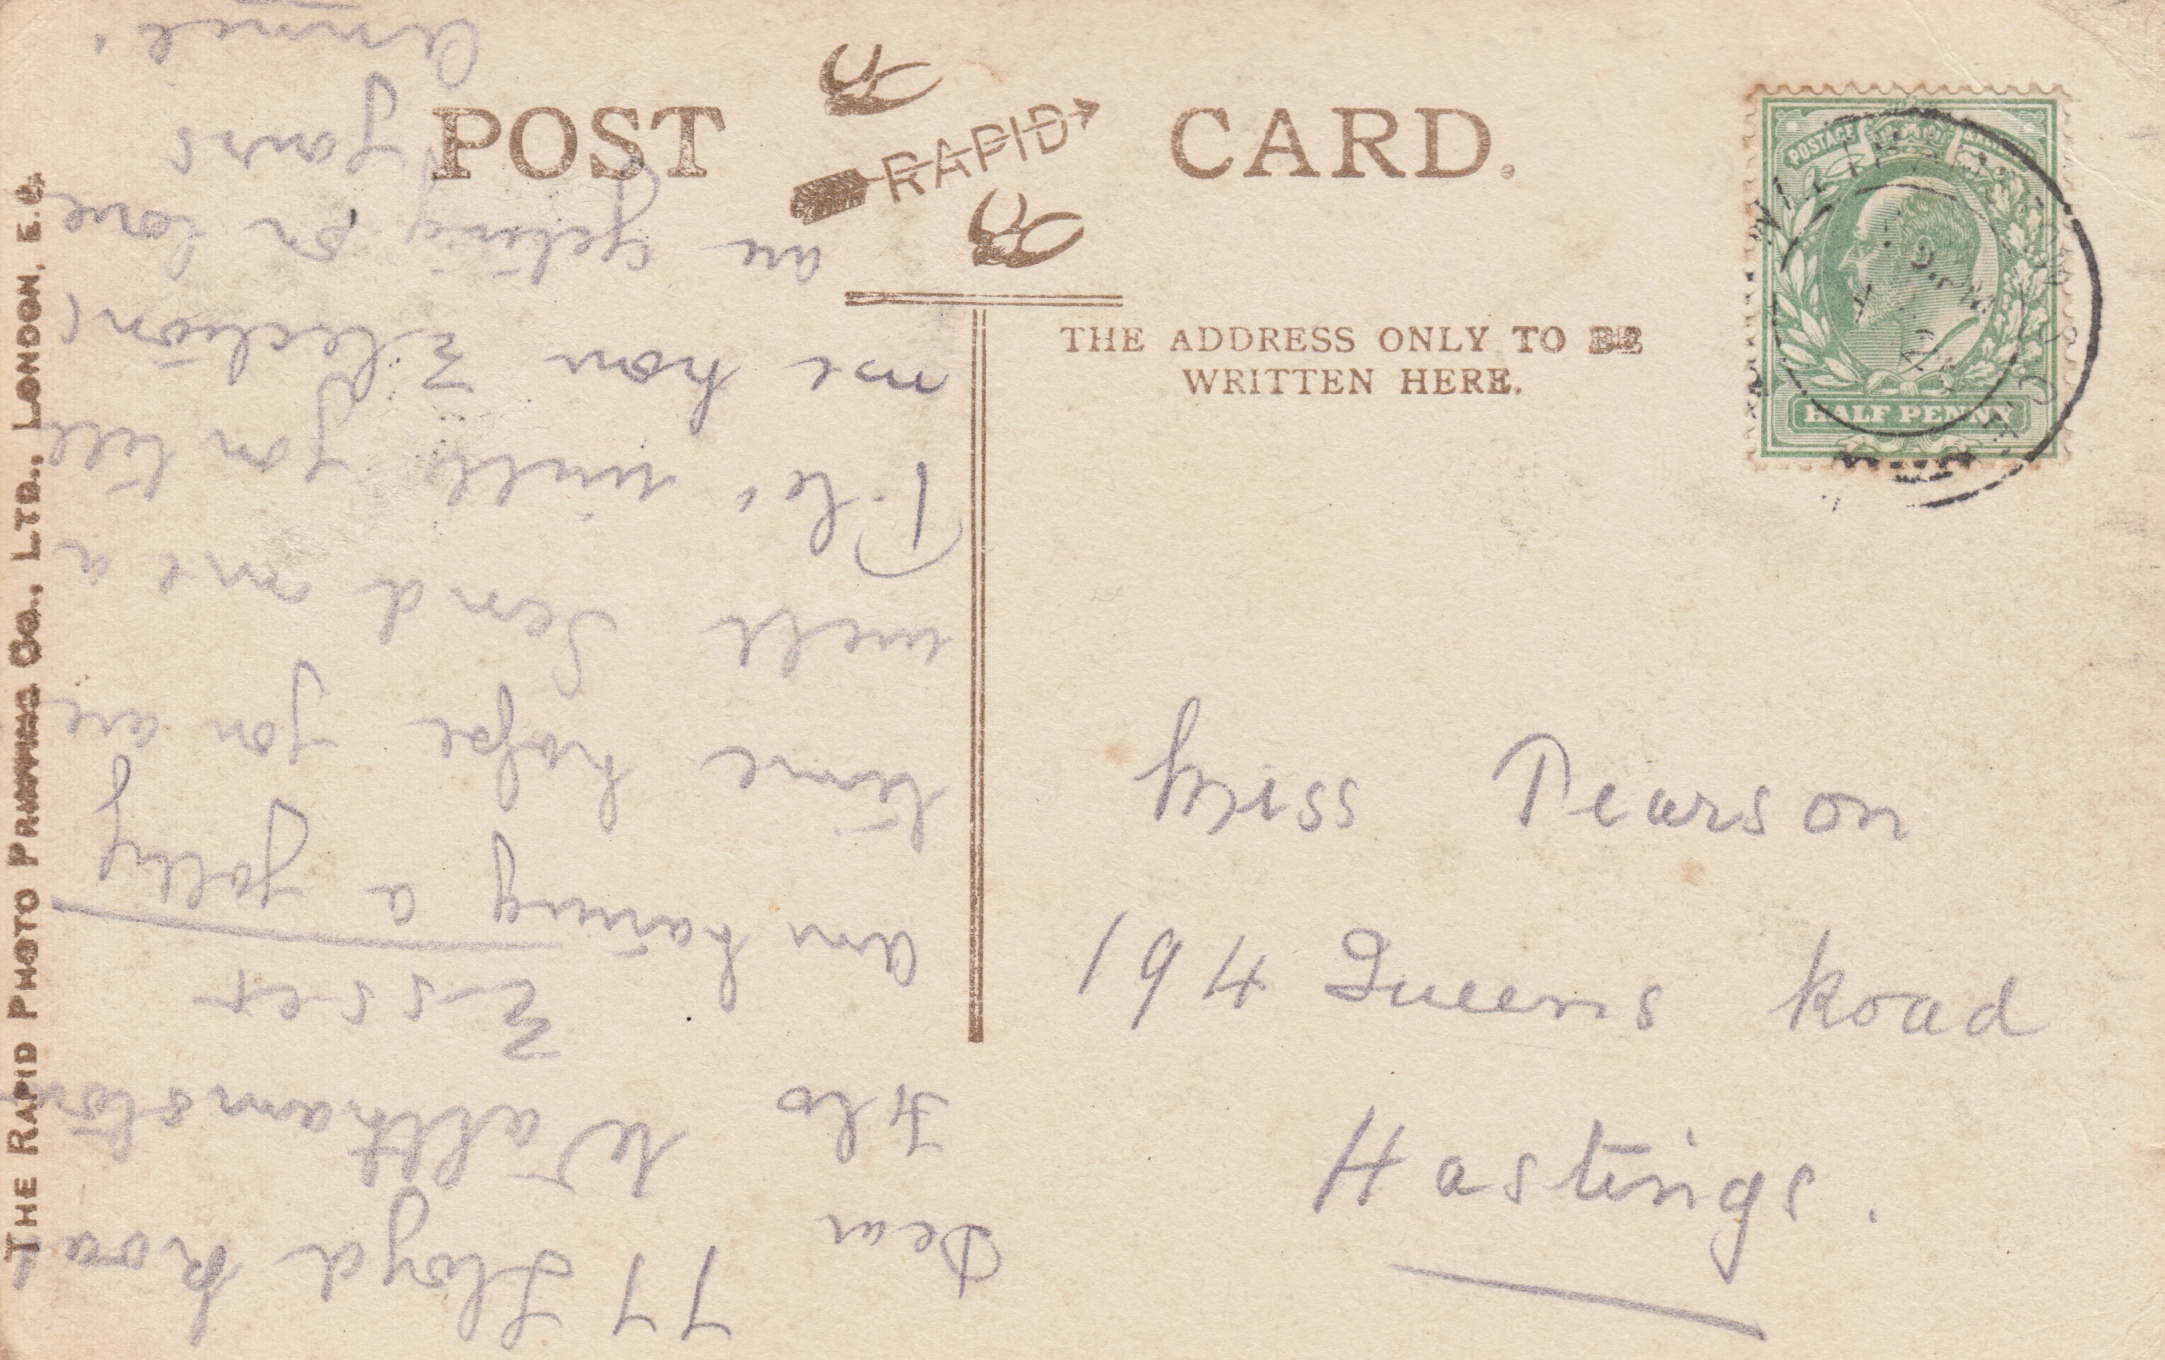 POST CARD.
RAPID
THE ADDRESS ONLY TO BE
WRITTEN HERE.
POSTAGE
HALF PENNY
Miss Pearson
194 Queens Road
Hastings.
77 Lloyd Road
Walthamstow
Essex
Dear Flo
am having a jolly
time hope you are
well send me a
will you tell
me how Elections
are getting on love
yours
Annie.
THE RAPID PHOTO PRINTING CO., LTD., LONDON, E.C.